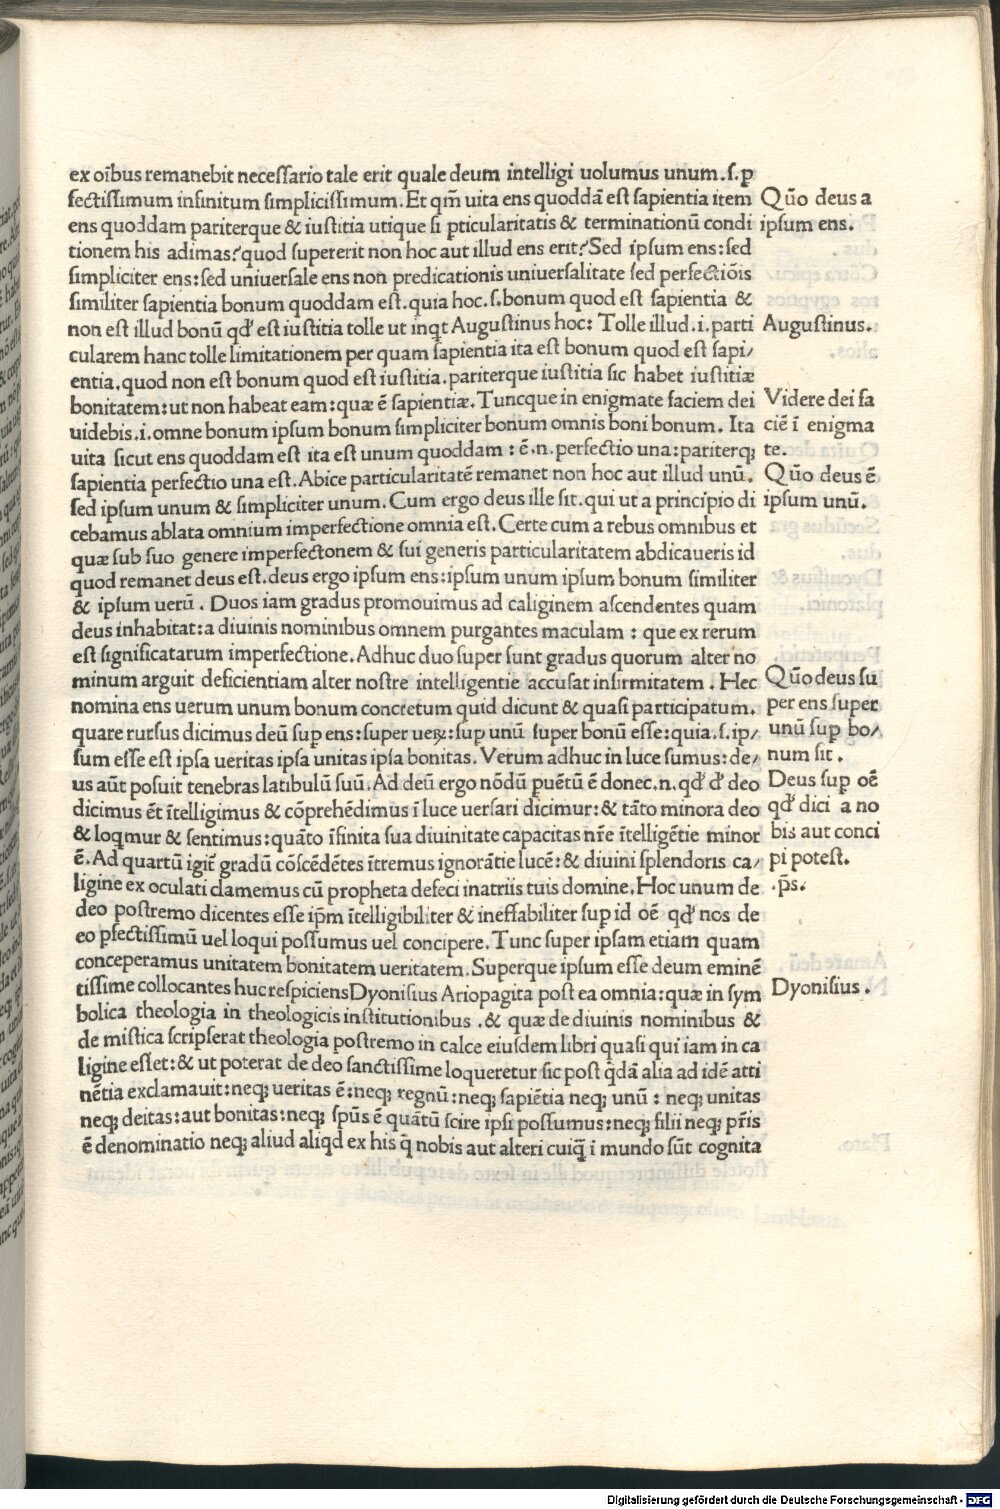 ex oībus remanebit necessario tale erit quale deum intelligi uolumus unum.s.p
fectissimum infinitum simplicissimum. Et qm̄ uita ens quoddā est sapientia item
ens quoddam pariterque & iustitia utique si pticularitatis & terminationū condi
tionem his adimas? quod supererit non hoc aut illud ens erit? Sed ipsum ens: sed
simpliciter ens: sed uniuersale ens non predicationis uniuersalitate sed perfectiōis
similiter sapientia bonum quoddam est. quia hoc.s. bonum quod est sapientia &
non est illud bonū qd' est iustitia tolle ut inqt Augustinus hoc: Tolle illud.i. parti
cularem hanc tolle limitationem per quam sapientia ita est bonum quod est sapi/
entia, quod non est bonum quod est iustitia. pariterque iustitia sic habet iustitiæ
bonitatem: ut non habeat eam: quæ ē sapientiæ. Tuncque in enigmate faciem dei
uidebis.i. omne bonum ipsum bonum simpliciter bonum omnis boni bonum. Ita
uita sicut ens quoddam est ita est unum quoddam : ē.n. perfectio una: pariterq;
sapientia perfectio una est. Abice particularitatē remanet non hoc aut illud unū.
sed ipsum unum & simpliciter unum. Cum ergo deus ille sit. qui ut a principio di
cebamus ablata omnium imperfectione omnia est. Certe cum a rebus omnibus et
quæ sub suo genere imperfectonem & sui generis particularitatem abdicaueris id
quod remanet deus est. deus ergo ipsum ens: ipsum unum ipsum bonum similiter
& ipsum uerū . Duos iam gradus promouimus ad caliginem ascendentes quam
deus inhabitat: a diuinis nominibus omnem purgantes maculam : que ex rerum
est significatarum imperfectione. Adhuc duo super sunt gradus quorum alter no
minum arguit deficientiam alter nostre intelligentie accusat infirmitatem . Hec
nomina ens uerum unum bonum concretum quid dicunt & quasi participatum.
quare rursus dicimus deū sup ens: super ueꝝ: sup unū super bonū esse: quia.s. ip/
sum esse est ipsa ueritas ipsa unitas ipsa bonitas. Verum adhuc in luce sumus: de/
us aūt posuit tenebras latibulū suū. Ad deū ergo nōdū puētū ē donec.n. qd' d' deo
dicimus ēt ītelligimus & cōprehēdimus ī luce uersari dicimur: & tāto minora deo
& loqmur & sentimus: quāto īfinita sua diuinitate capacitas nr̄e ītelligētie minor
ē. Ad quartū igit' gradū cōscēdētes ītremus ignorātie lucē: & diuini splendoris ca/
ligine ex oculati clamemus cū propheta defeci inatriis tuis domine. Hoc unum de
deo postremo dicentes esse ip̄m ītelligibiliter & ineffabiliter sup id oē qd' nos de
eo pfectissimū uel loqui possumus uel concipere. Tunc super ipsam etiam quam
conceperamus unitatem bonitatem ueritatem. Superque ipsum esse deum eminē
tissime collocantes huc respiciens Dyonisius Ariopagita post ea omnia: quæ in sym
bolica theologia in theologicis institutionibus . & quæ de diuinis nominibus &
de mistica scripserat theologia postremo in calce eiusdem libri quasi qui iam in ca
ligine esset: & ut poterat de deo sanctissime loqueretur sic post q̄dā alia ad idē atti
nētia exclamauit: neq; ueritas ē: neq; regnū: neq; sapiētia neq; unū : neq; unitas
neq; deitas: aut bonitas: neq; spūs ē quātū scire ipsi possumus: neq; filii neq; pr̄is
ē denominatio neq; aliud aliqd ex his q̄ nobis aut alteri cuiq̄ ī mundo sūt cognita
Qūo deus a
ipsum ens.
Augustinus.
Videre dei fa
ciē ī enigma
te.
Qūo deus ē
ipsum unū.
Qūo deus su
per ens super
unū sup bo/
num sit .
Deus sup oē
qd' dici a no
bis aut conci
pi potest.
.p̄s.
Dyonisius .
Digitalisierung gefördert durch die Deutsche Forschungsgemeinschaft - DFG